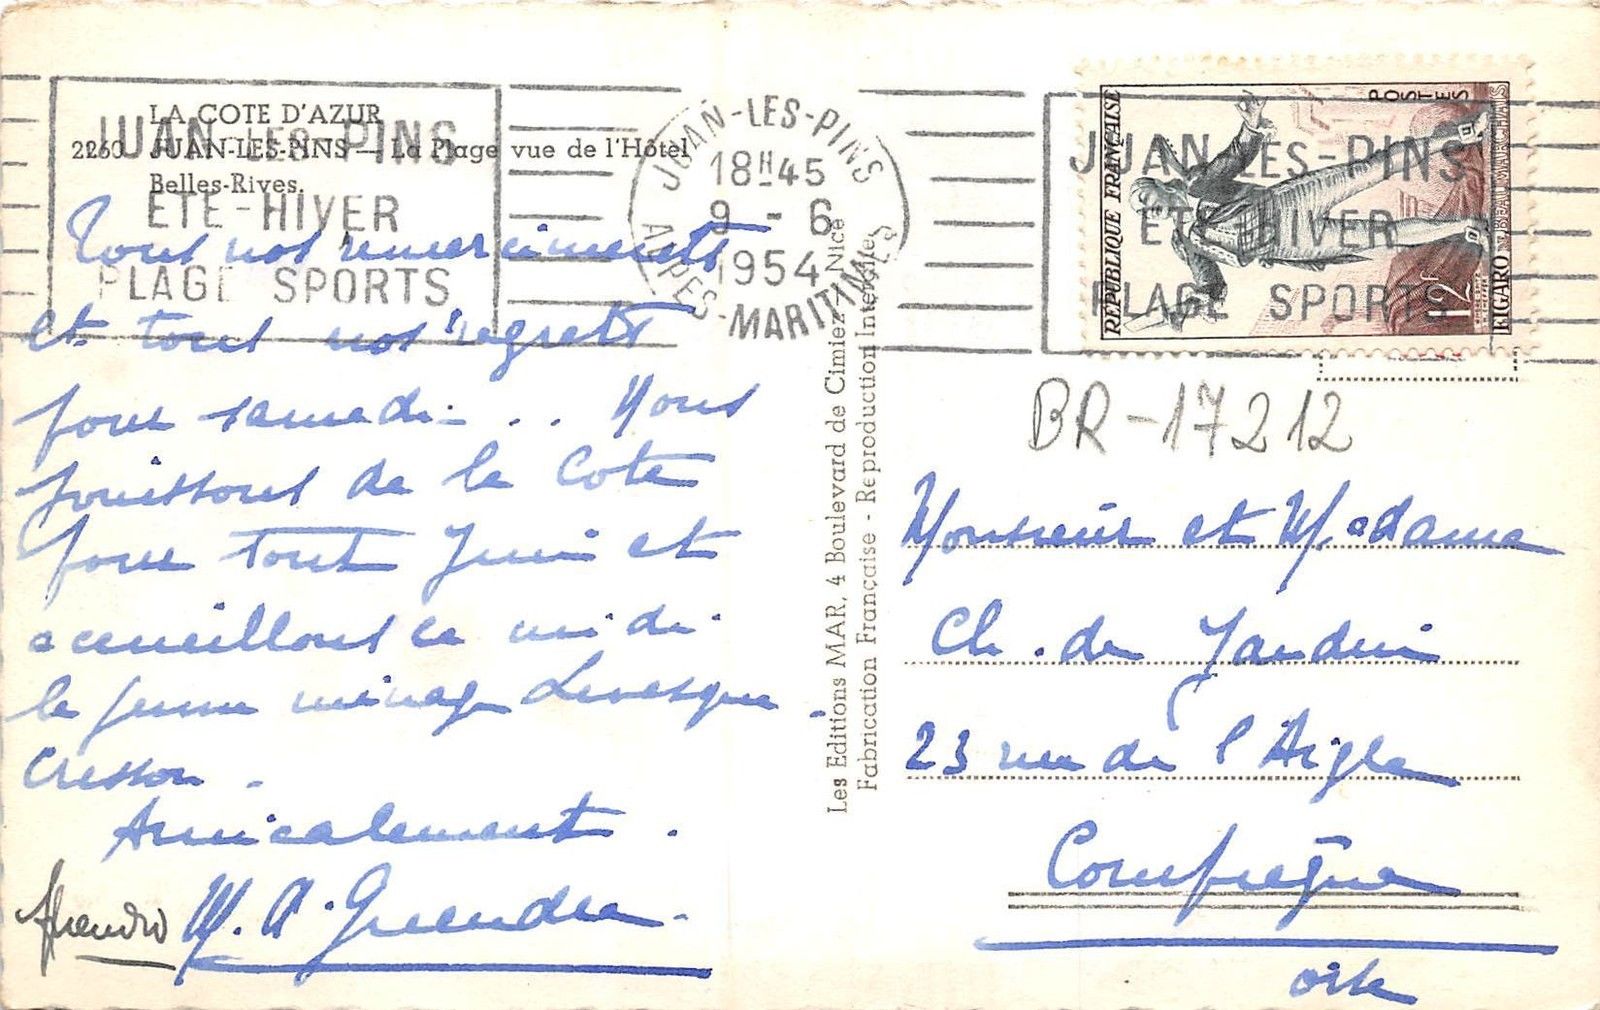 LA COTE D'AZUR
2260 JUAN-LES-PINS — La Plage vue de l'Hôtel
Belles-Rives.
JUAN-LES-PINS
ÉTÉ-HIVER
PLAGE SPORTS
JUAN-LES-PINS
18H45
9 - 6
1954
ALPES-MARITIMES
JUAN-LES-PINS
ÉTÉ HIVER
PLAGE SPORTS
RÉPUBLIQUE FRANÇAISE
POSTES
12f
FIGARO BEAUMARCHAIS
Tous nos remerciments
et tous nos regrets
pour samedi .. Nous
jouissons de la Cote
pour tout Juin et
accueillons ce midi
le jeune ménage Levesque -
Cresson .
Amicalement .
M. A.
Les Editions MAR, 4 Boulevard de Cimiez - Nice
Fabrication Française - Reproduction Interdite
BR-17212
Monsieur et Madame
Ch. de
23 rue de l'Aigle
Compiègne
Oise